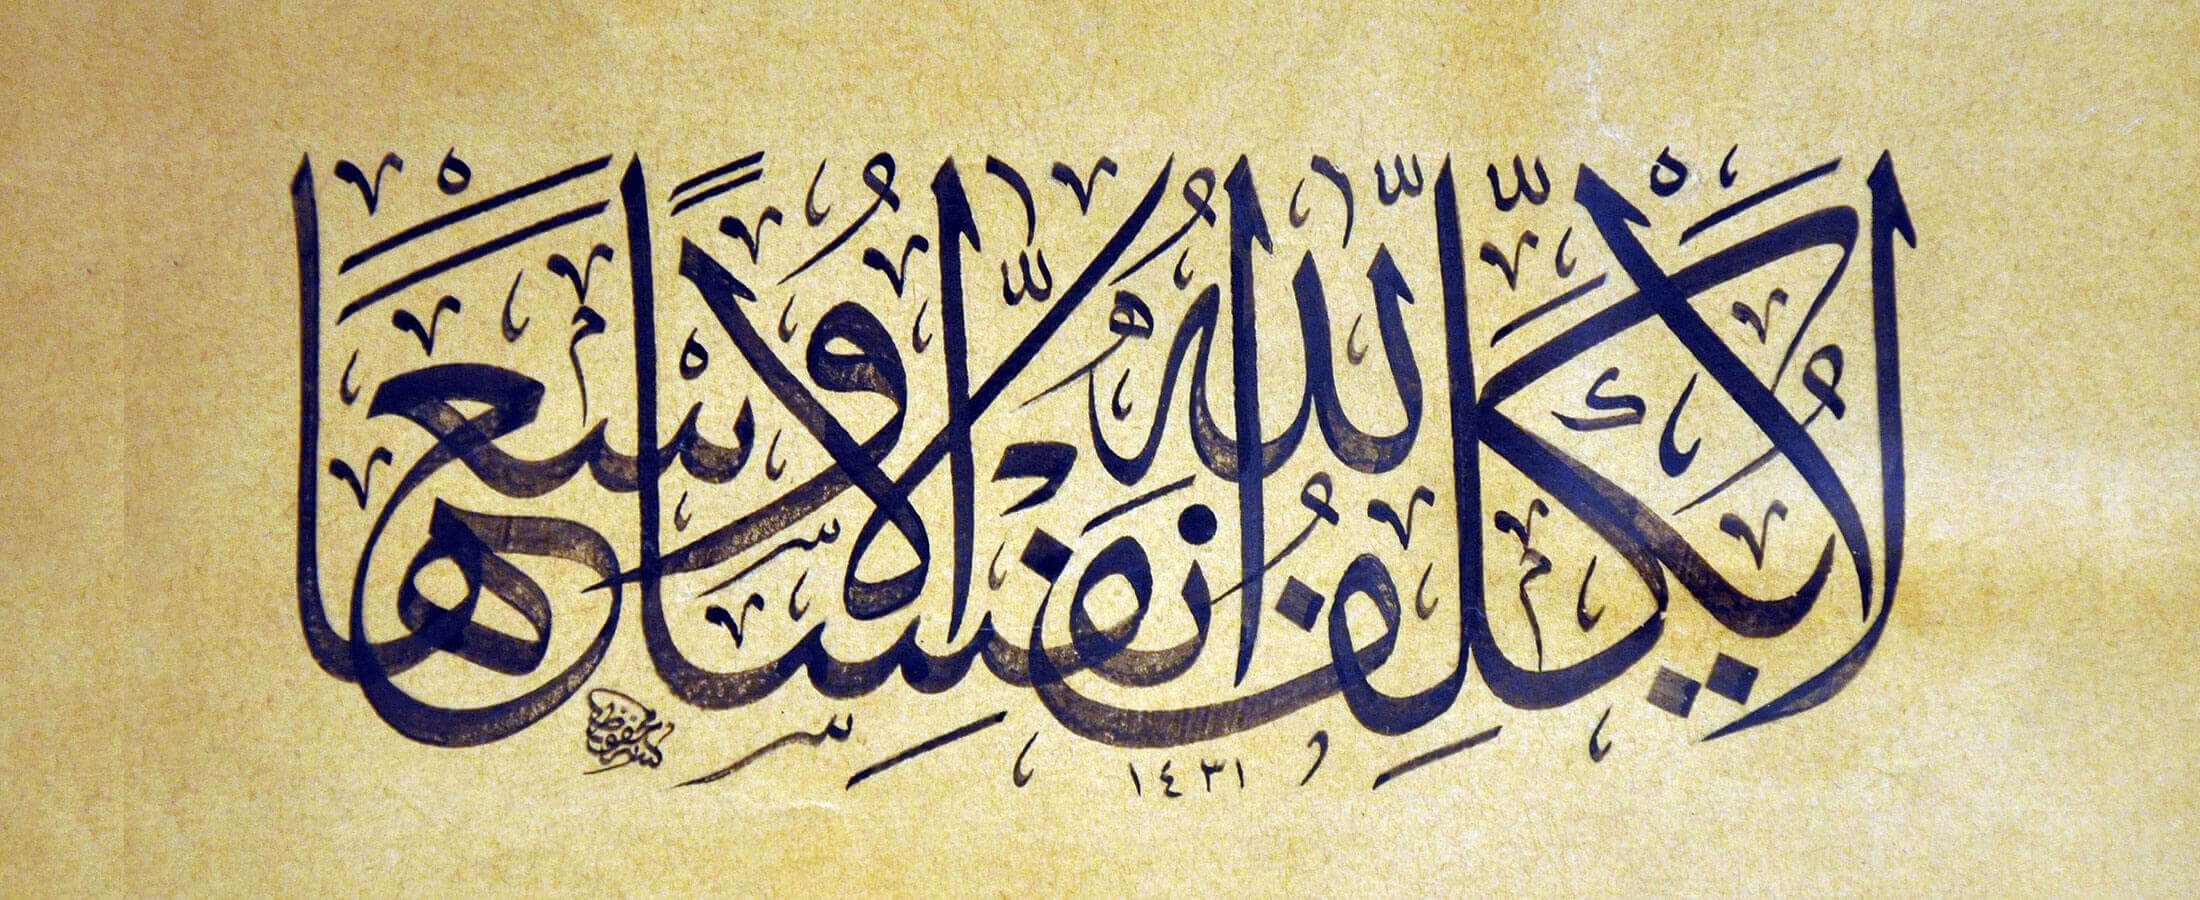 لَا يُكَلِّفُ اللّٰهُ نَفْسًا اِلَّا وُسْعَهَا
١٤٣١